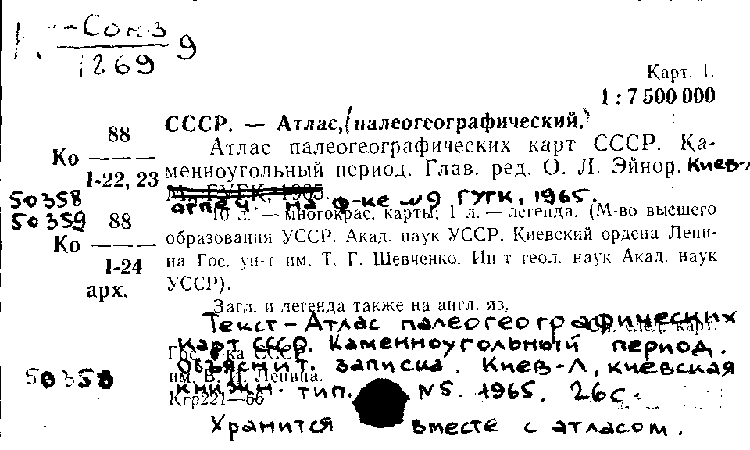 К-Союз
1269 9
Карт. 1.
1 : 7 500 000
СССР. — Атлас, (палеогеографический.)
88
Ко
1-22, 23
Атлас палеогеографических карт СССР. Ка-
менноугольный период. Глав. ред. О. Л. Эйнор. Киев-
М., ГУГК, 1965
50358
50359
отпеч. на ф-ке №9 ГУГК, 1965.
10 л. — многокрас. карты, 1 л. — легенда. (М-во высшего
88
Ко
1-24
арх.
образования УССР. Акад. наук УССР. Киевский ордена Лени-
на Гос. ун-т им. Т. Г. Шевченко. Ин-т геол. наук Акад. наук
УССР).
Загл. и легенда также на англ. яз.
См. след. карт.
Текст - Атлас палеогеографических
карт СССР. Каменноугольный период.
Гос. б-ка СССР
Объяснит. записка. Киев-Л, киевская
50358
им. В. И. Ленина.
книжн. тип. №5. 1965. 26с.
Кгр221—66
Хранится вместе с атласом.